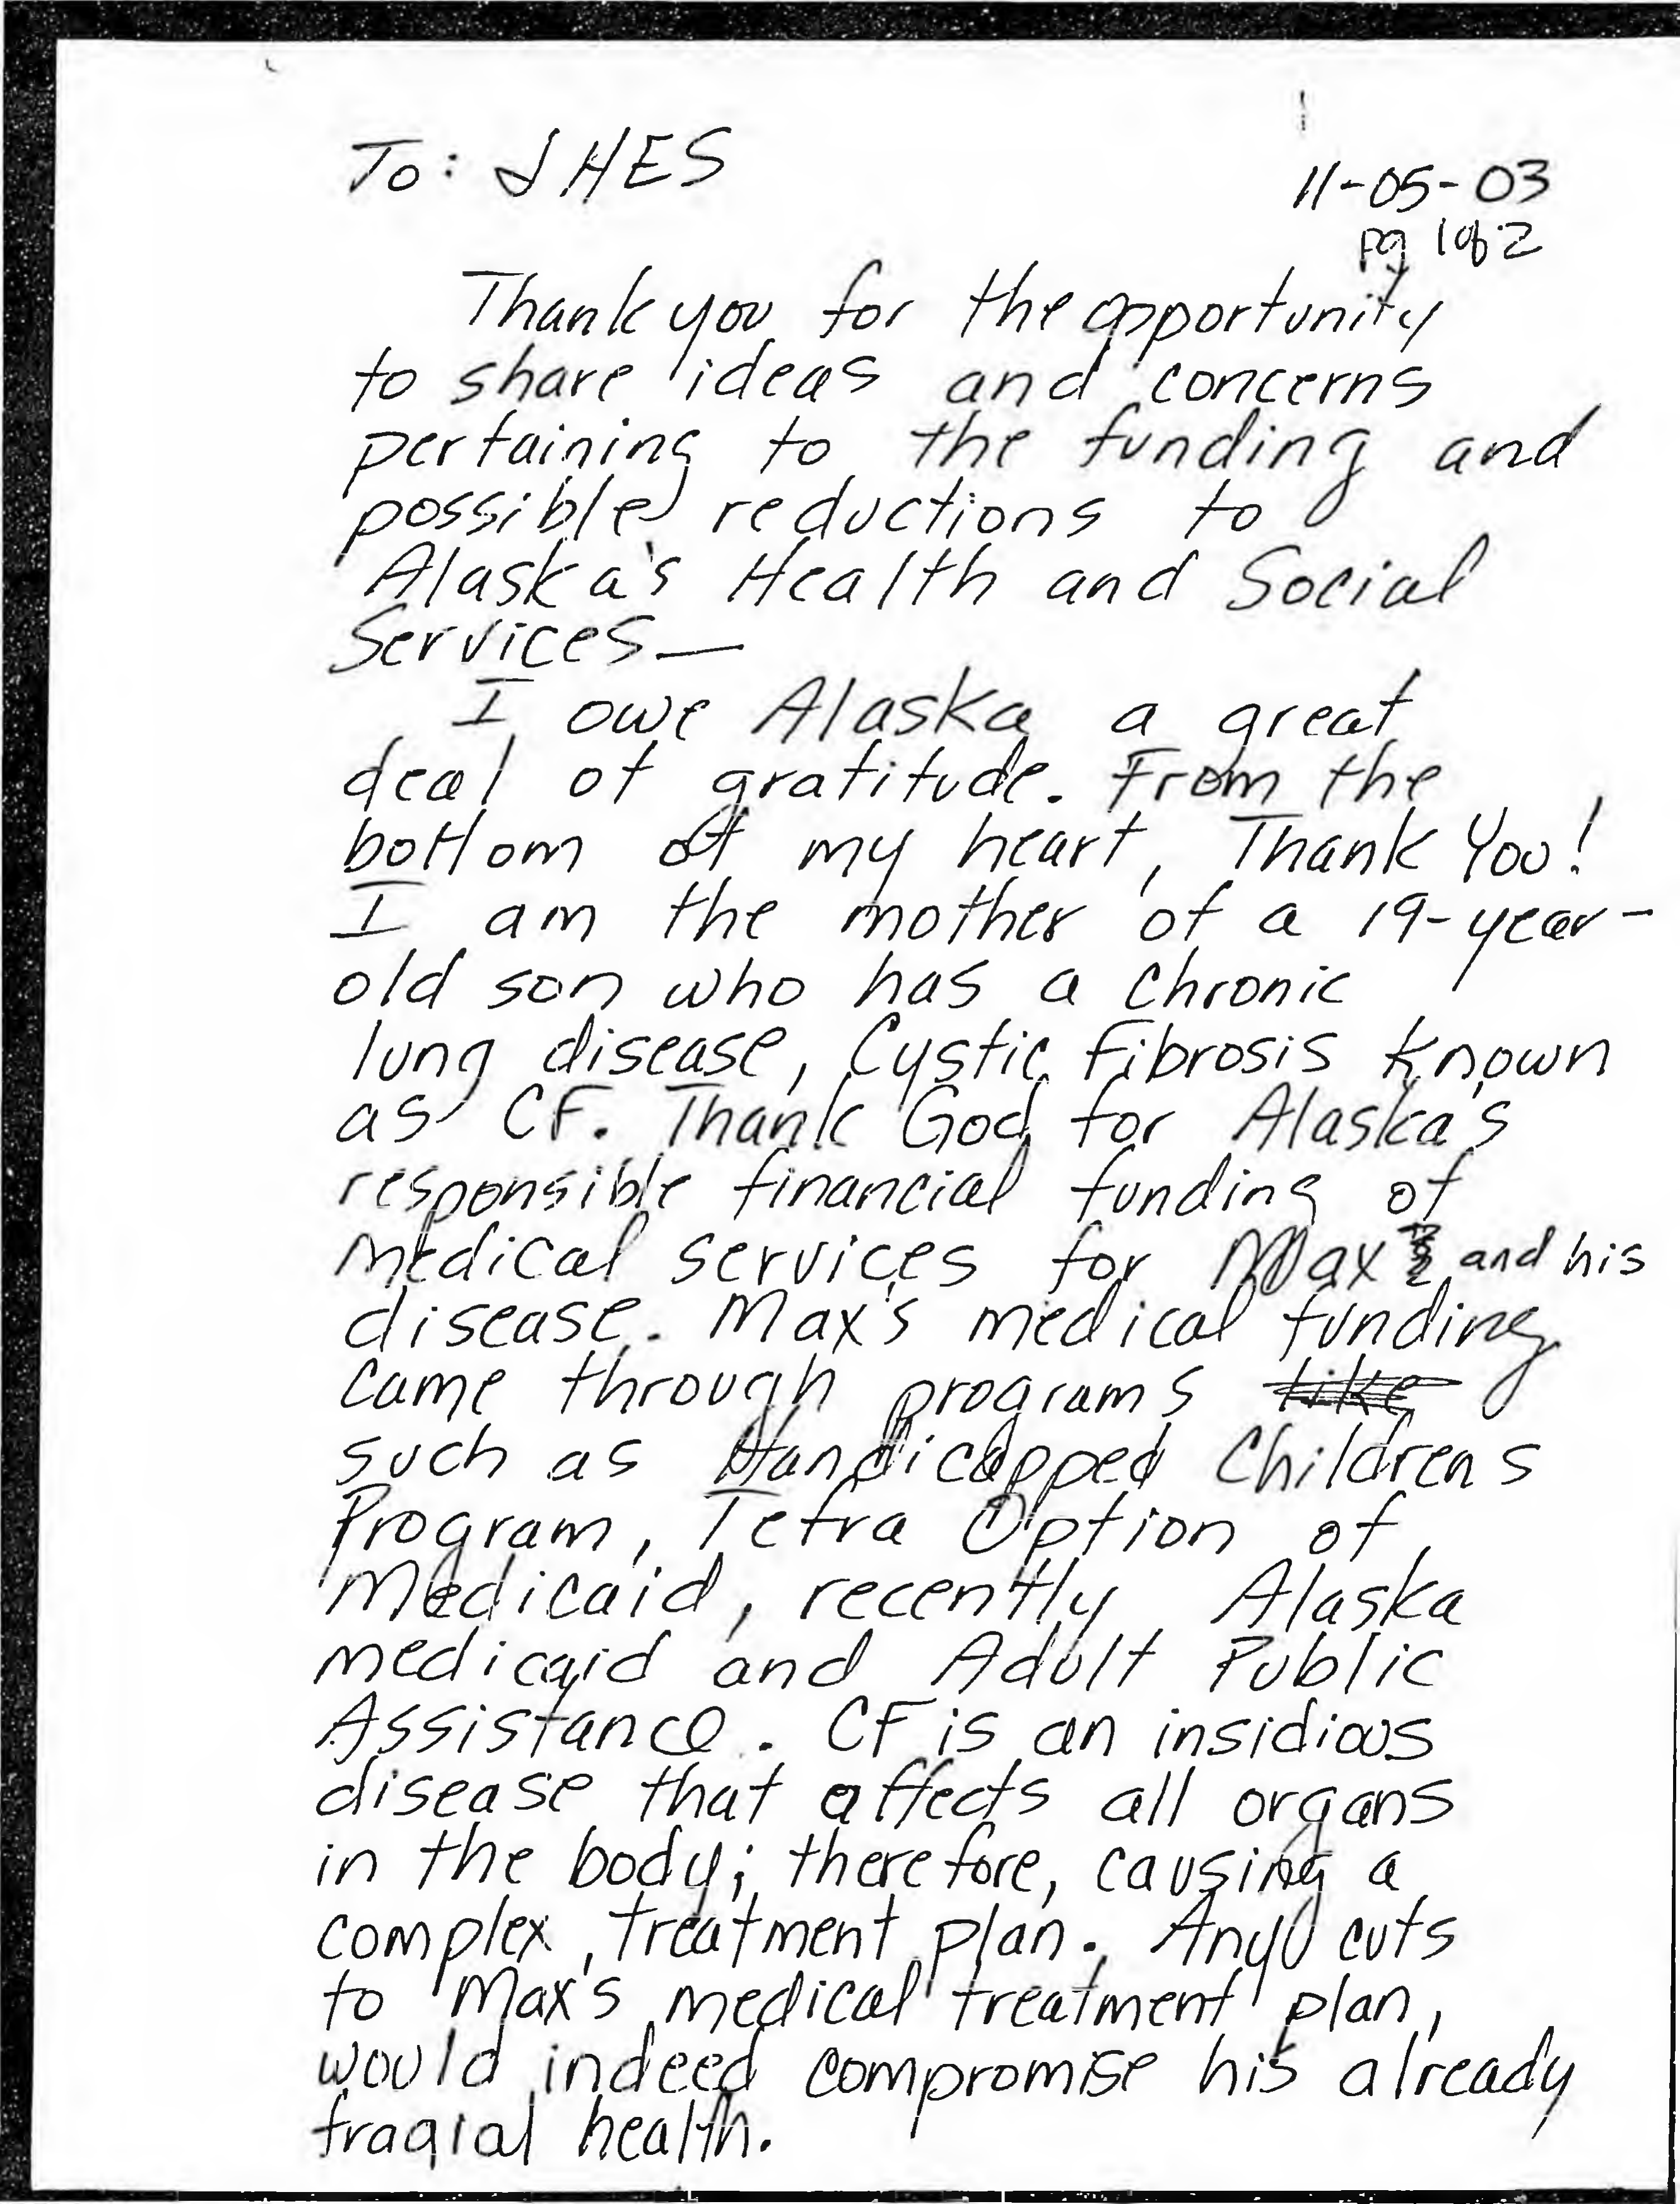 To: JHES
11-05-03
pg 1 of 2
Thank you for the opportunity
to share ideas and concerns
pertaining to the funding and
possible reductions to
Alaska's Health and Social
Services—
I owe Alaska a great
deal of gratitude. From the
bottom of my heart, Thank You!
I am the mother of a 19-year-
old son who has a chronic
lung disease, Cystic Fibrosis known
as CF. Thank God for Alaska's
responsible financial funding of
medical services for Max and his
disease. Max's medical funding
came through programs like
such as Handicapped Childrens
Program, Tefra Option of
Medicaid, recently Alaska
medicaid and Adult Public
Assistance. CF is an insidious
disease that affects all organs
in the body; therefore, causing a
complex treatment plan. Any cuts
to Max's medical treatment plan,
would indeed compromise his already
fragial health.